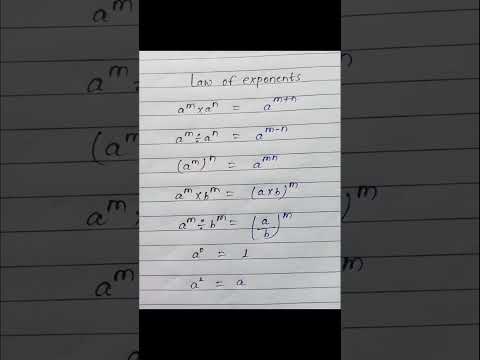 Law of exponents
a^m × a^n = a^{m+n}
a^m ÷ a^n = a^{m-n}
(a^m)^n = a^{mn}
a^m × b^m = (a × b)^m
a^m ÷ b^m = (a/b)^m
a^0 = 1
a^1 = a